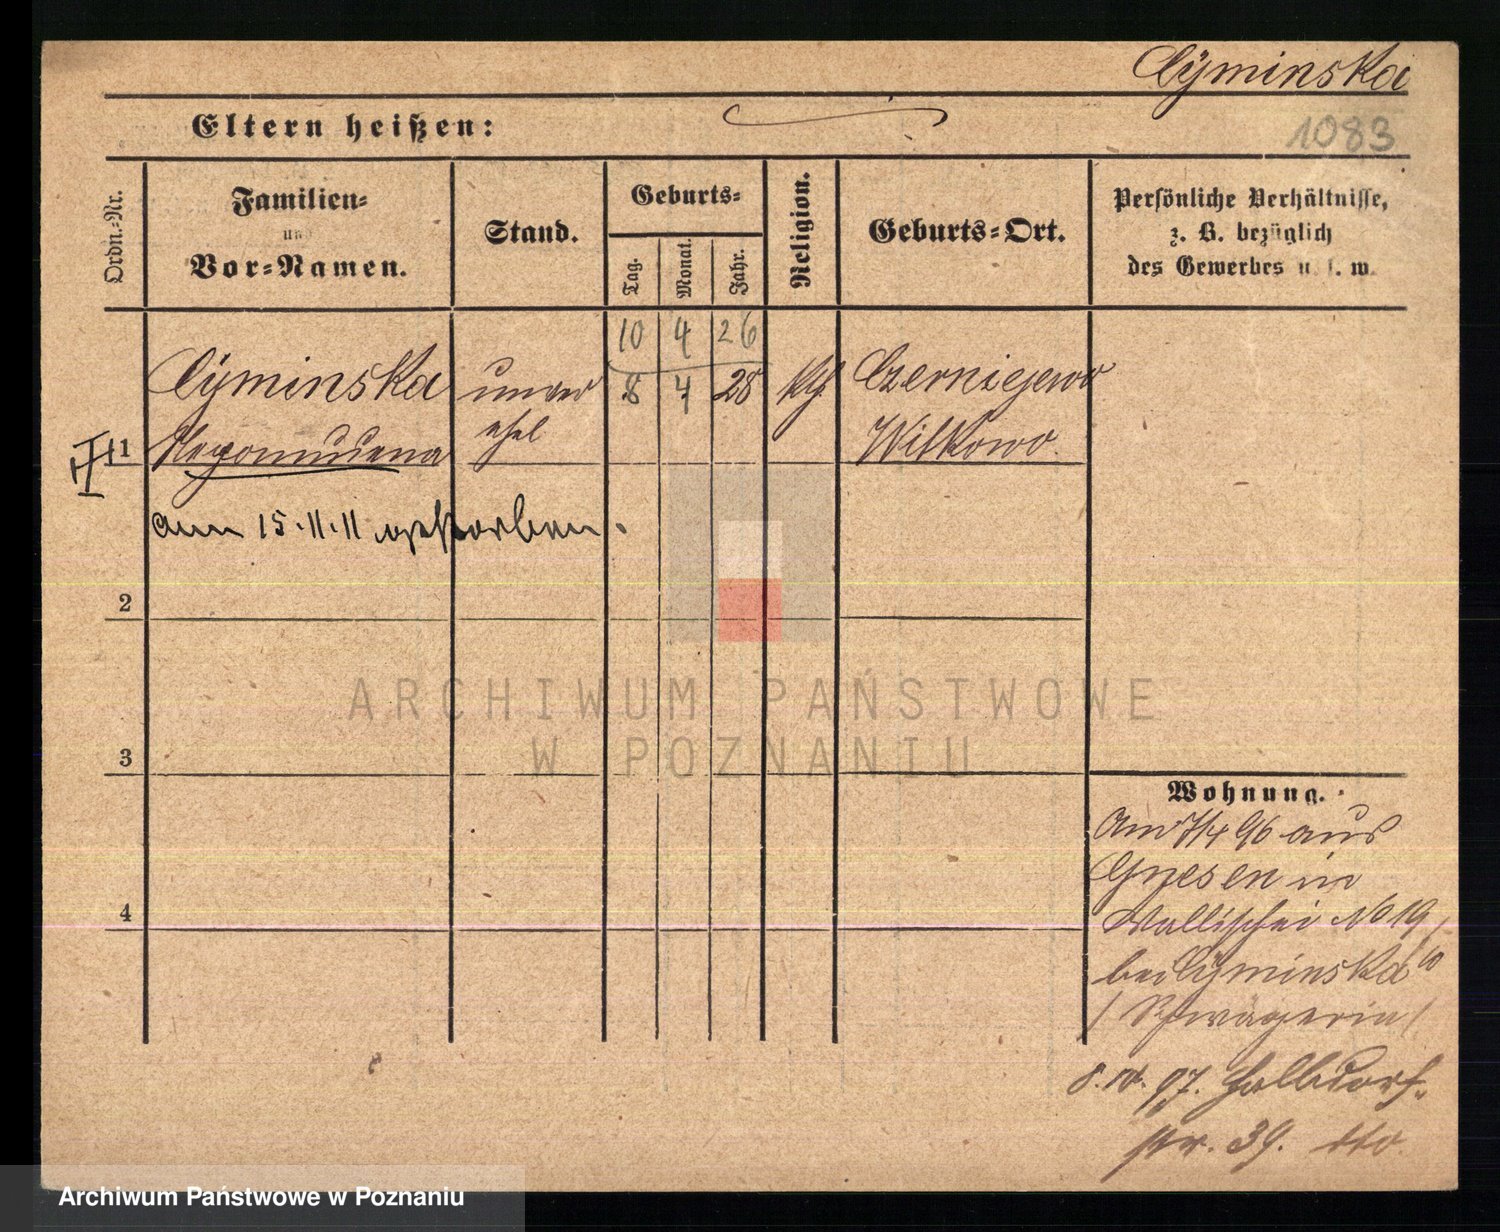 Cÿminska
Eltern heißen:
1083
Ordn.-Nr.
Familien-
und
Vor-Namen.
Stand.
Geburts-
Tag.
Monat.
Jahr.
Religion.
Geburts-Ort.
Persönliche Verhältnisse,
z. B. bezüglich
des Gewerbes u. s. w.
10 4 26
Cÿminska unver 8 4 28 Czerniejewo
1 Nepomucena ehel Witkowo.
am 15.11.11 gestorben.
2
ARCHIWUM PAŃSTWOWE
W POZNANIU
3
4
Wohnung.
Am 7/4 96 aus
Gnesen in
Wallischei No 19/10
bei Cÿminska
/Schwägerin/
8.10.97. Halbdorf-
str. 39. dto.
Archiwum Państwowe w Poznaniu